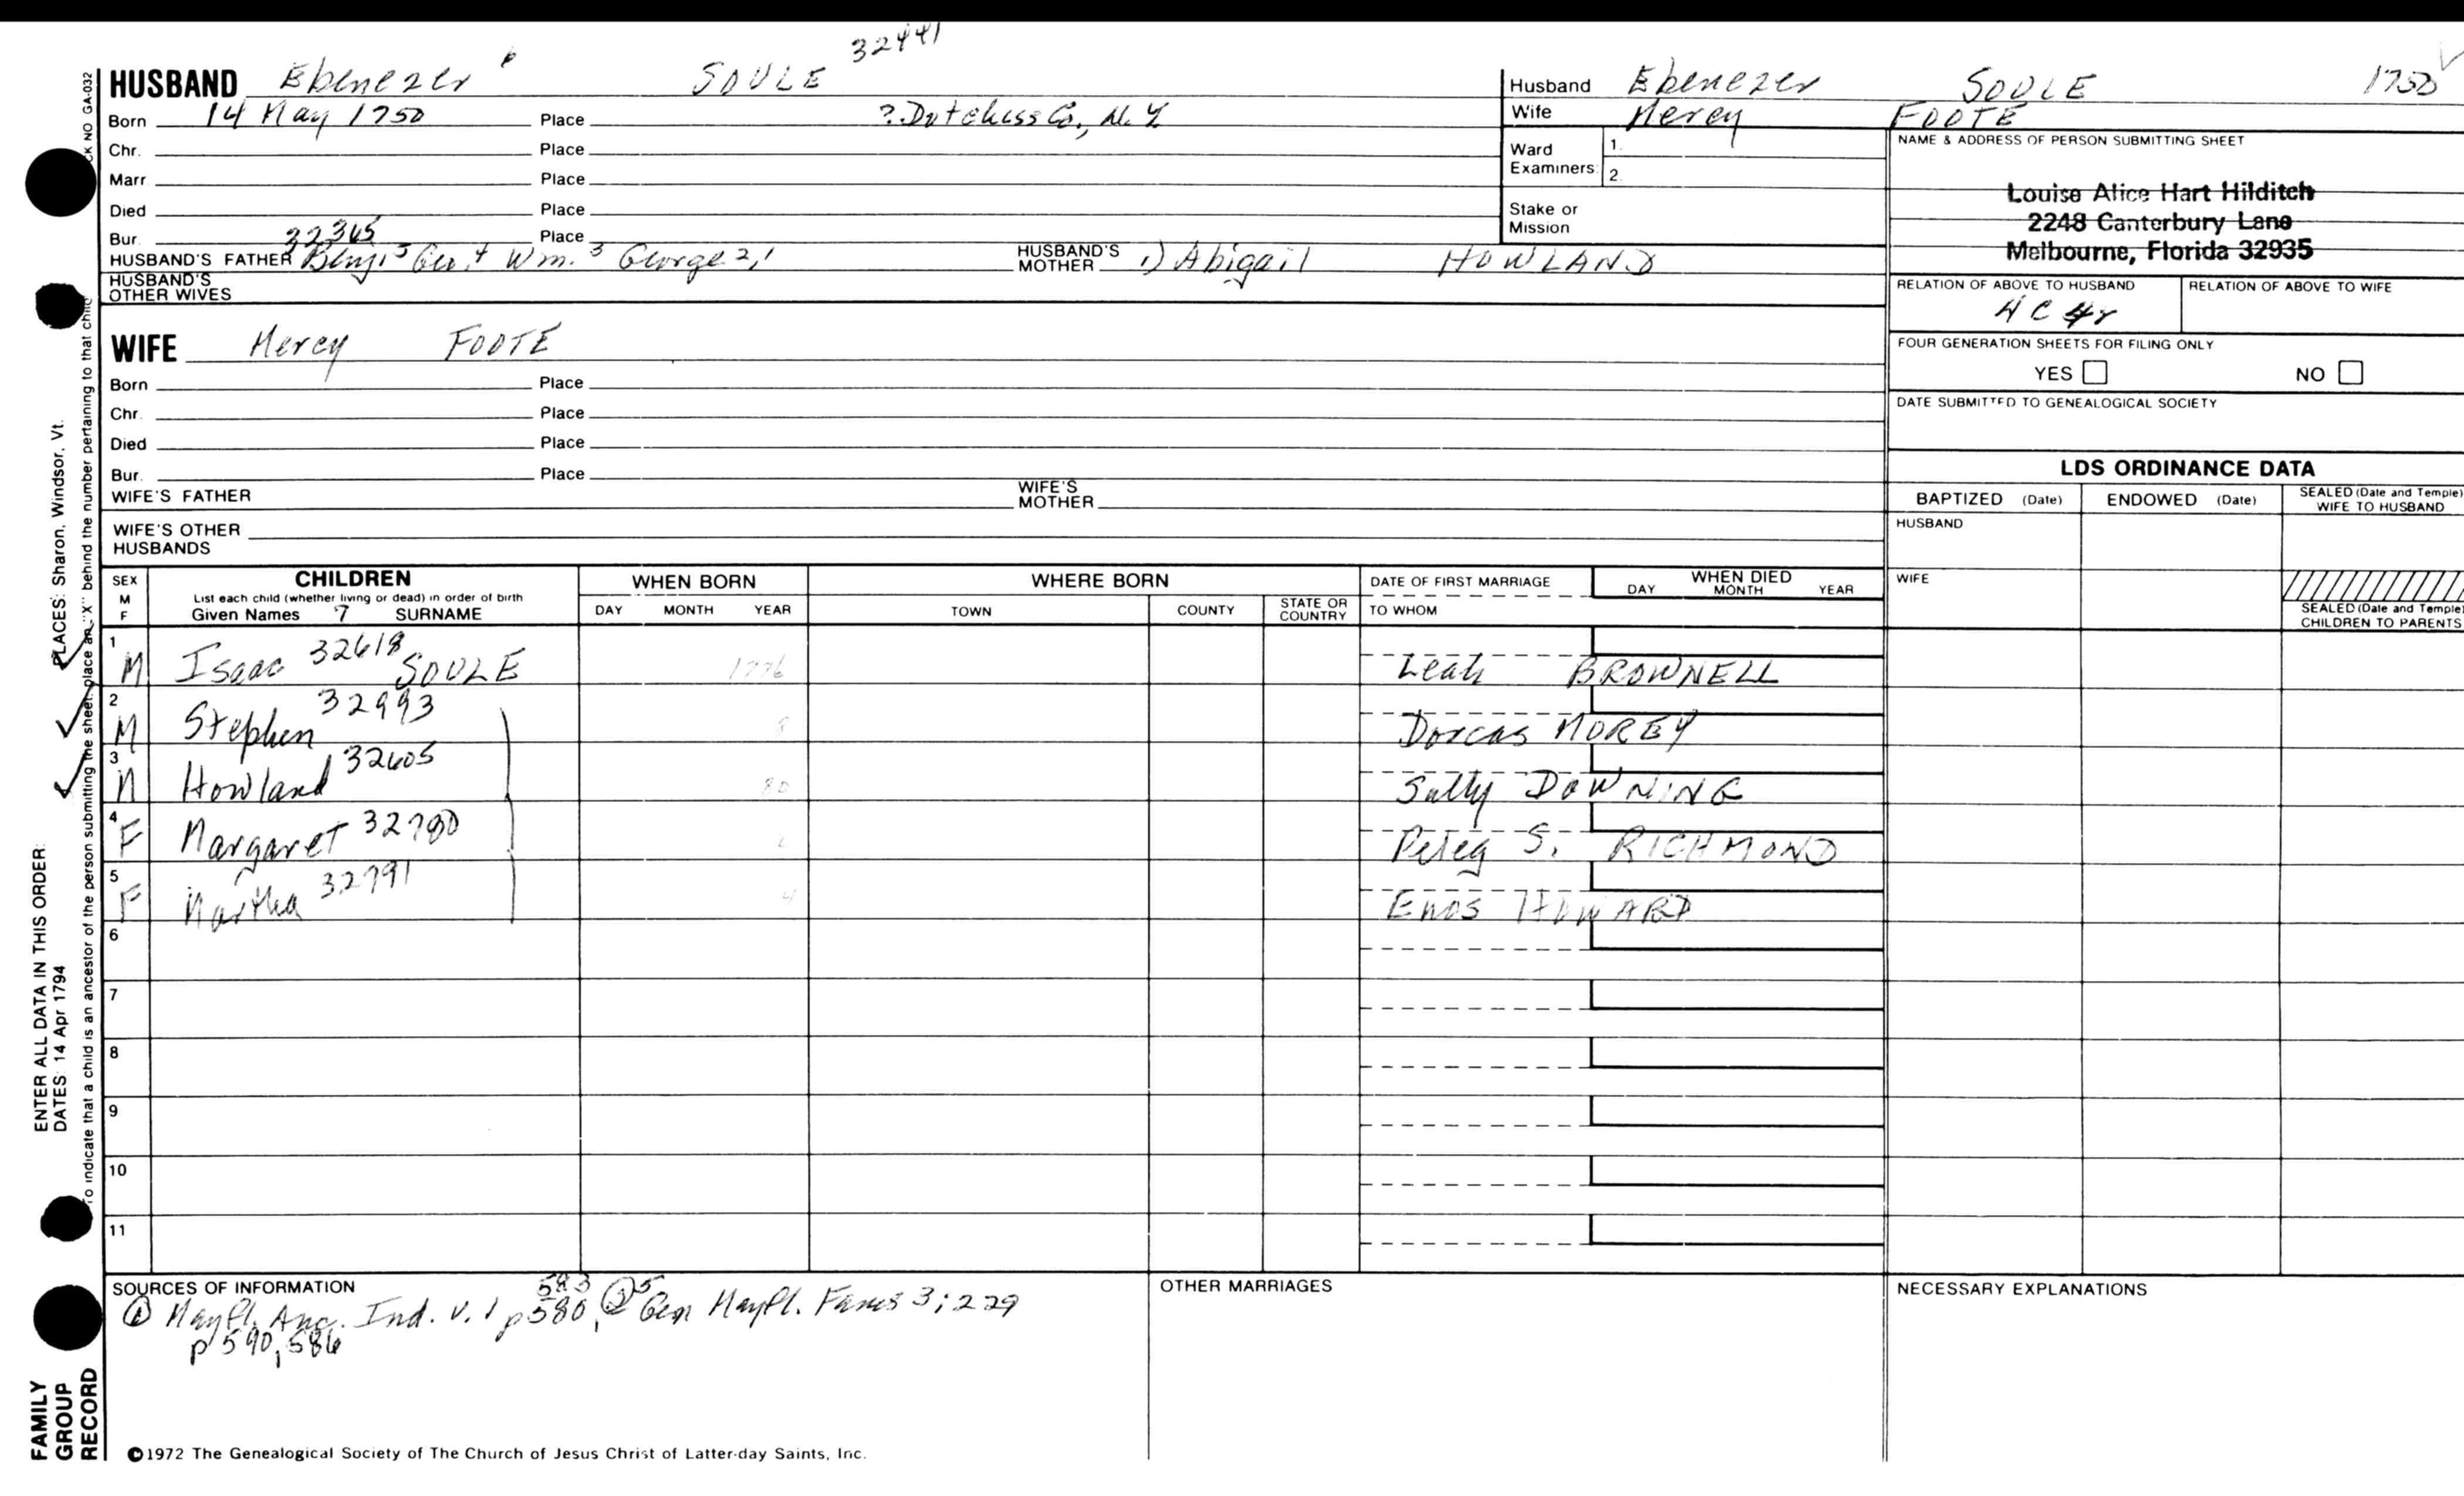 32441
HUSBAND Ebenezer 6 SOULE
Born 14 May 1750 Place ? Dutchess Co., N.Y.
Chr. Place
Marr. Place
Died Place
Bur. Place
32365
HUSBAND'S FATHER Benj.5 Geo.4 Wm.3 George 2,1 HUSBAND'S MOTHER 1) Abigail HOWLAND
HUSBAND'S OTHER WIVES
WIFE Mercy FOOTE
Born Place
Chr. Place
Died Place
Bur. Place
WIFE'S FATHER WIFE'S MOTHER
WIFE'S OTHER HUSBANDS
Husband Ebenezer SOULE 1750
Wife Mercy FOOTE
Ward Examiners: 1. 2.
Stake or Mission
NAME & ADDRESS OF PERSON SUBMITTING SHEET
Louise Alice Hart Hilditch
2248 Canterbury Lane
Melbourne, Florida 32935
RELATION OF ABOVE TO HUSBAND RELATION OF ABOVE TO WIFE
4C 4r
FOUR GENERATION SHEETS FOR FILING ONLY
YES NO
DATE SUBMITTED TO GENEALOGICAL SOCIETY
LDS ORDINANCE DATA
BAPTIZED (Date) ENDOWED (Date) SEALED (Date and Temple) WIFE TO HUSBAND
HUSBAND
WIFE
SEALED (Date and Temple) CHILDREN TO PARENTS
SEX M F
CHILDREN
List each child (whether living or dead) in order of birth
Given Names 7 SURNAME
WHEN BORN
DAY MONTH YEAR
WHERE BORN
TOWN COUNTY STATE OR COUNTRY
DATE OF FIRST MARRIAGE
TO WHOM
WHEN DIED
DAY MONTH YEAR
1 M Isaac 32618 SOULE 1776 Leah BROWNELL
2 M Stephen 32993 8 Dorcas MOREY
3 M Howland 32605 80 Sally DOWNING
4 F Margaret 32780 Peleg S. RICHMOND
5 F Martha 32791 4 Enos HOWARD
6
7
8
9
10
11
SOURCES OF INFORMATION
583
① Mayfl. Anc. Ind. v.1 p580, ②5 Gen Mayfl. Fams 3:229
p590,586
OTHER MARRIAGES
NECESSARY EXPLANATIONS
©1972 The Genealogical Society of The Church of Jesus Christ of Latter-day Saints, Inc.
FAMILY GROUP RECORD
ENTER ALL DATA IN THIS ORDER:
DATES: 14 Apr 1794 PLACES: Sharon, Windsor, Vt.
To indicate that a child is an ancestor of the person submitting the sheet, place an "X" behind the number pertaining to that child
CK NO GA-032